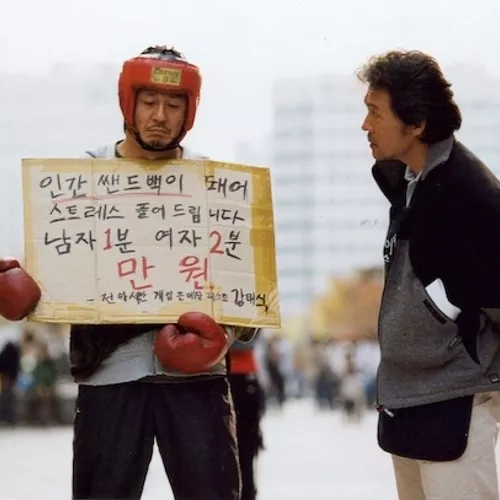 인간 쌘드백이 돼어
스트레스 풀어 드립니다
남자 1분 여자 2분
만 원
- 전 아시안 게임 은메달 리스트 강태식